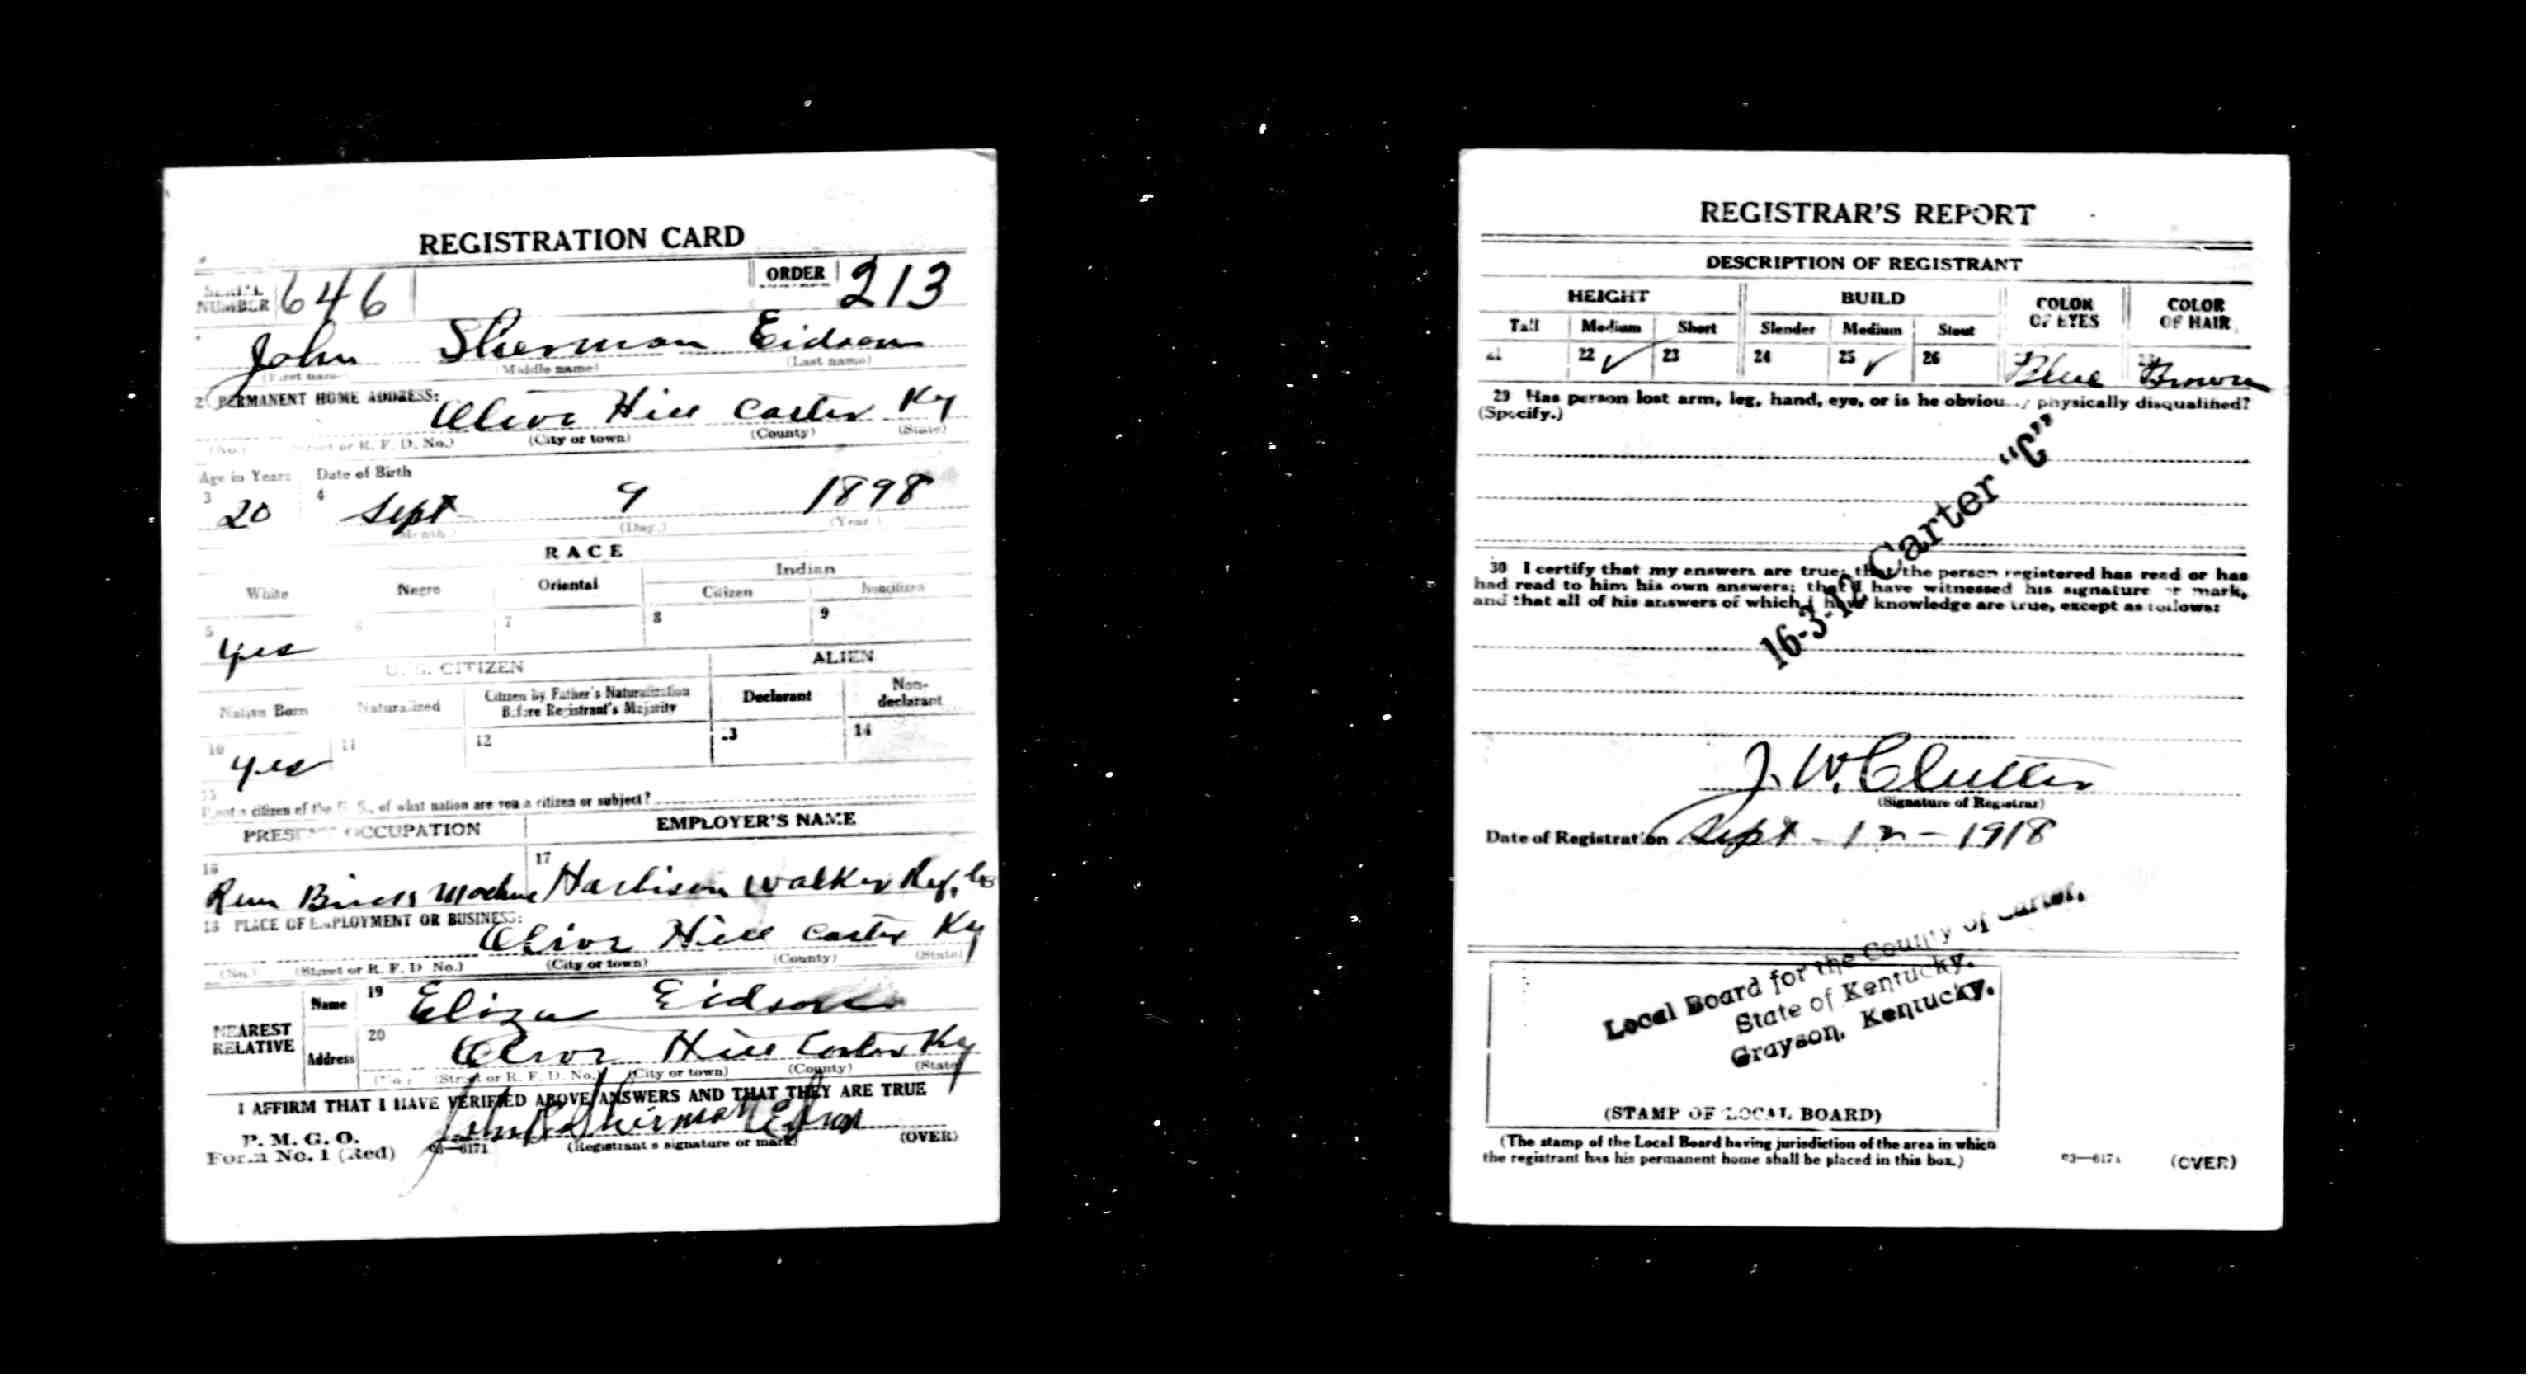 REGISTRATION CARD
SERIAL NUMBER 646 ORDER 213
John Sherman Eidson
(First name) (Middle name) (Last name)
2 PERMANENT HOME ADDRESS:
Olive Hill Carter Ky
(No.) (Street or R. F. D. No.) (City or town) (County) (State)
Age in Years Date of Birth
3 20 4 Sept 9 1898
(Month.) (Day.) (Year.)
RACE
White Negro Oriental Indian
Citizen Noncitizen
5 6 7 8 9
yes
U. S. CITIZEN ALIEN
Native Born Naturalized Citizen by Father's Naturalization Before Registrant's Majority Declarant Non-declarant
10 11 12 13 14
yes
15
If not a citizen of the U. S., of what nation are you a citizen or subject?
PRESENT OCCUPATION EMPLOYER'S NAME
16 17
Run Brick Machine Harbison Walker Ref. Co
18 PLACE OF EMPLOYMENT OR BUSINESS:
Olive Hill Carter Ky
(No.) (Street or R. F. D. No.) (City or town) (County) (State)
NEAREST RELATIVE
Name 19 Eliza Eidson
Address 20 Olive Hill Carter Ky
(No.) (Street or R. F. D. No.) (City or town) (County) (State)
I AFFIRM THAT I HAVE VERIFIED ABOVE ANSWERS AND THAT THEY ARE TRUE
John Sherman
P. M. G. O.
Form No. 1 (Red) 03—6171 (Registrant's signature or mark) (OVER)
REGISTRAR'S REPORT
DESCRIPTION OF REGISTRANT
HEIGHT BUILD COLOR OF EYES COLOR OF HAIR
Tall Medium Short Slender Medium Stout
21 22 ✓ 23 24 25 ✓ 26 Blue Brown
29 Has person lost arm, leg, hand, eye, or is he obviously physically disqualified?
(Specify.)
16-3-12 Carter "C"
30 I certify that my answers are true; that the person registered has read or has
had read to him his own answers; that I have witnessed his signature or mark,
and that all of his answers of which I have knowledge are true, except as follows:
J. W. Clutter
(Signature of Registrar)
Date of Registration Sept - 12 - 1918
Local Board for the County of Carter,
State of Kentucky.
Grayson, Kentucky.
(STAMP OF LOCAL BOARD)
(The stamp of the Local Board having jurisdiction of the area in which
the registrant has his permanent home shall be placed in this box.)
03—6171 (OVER)